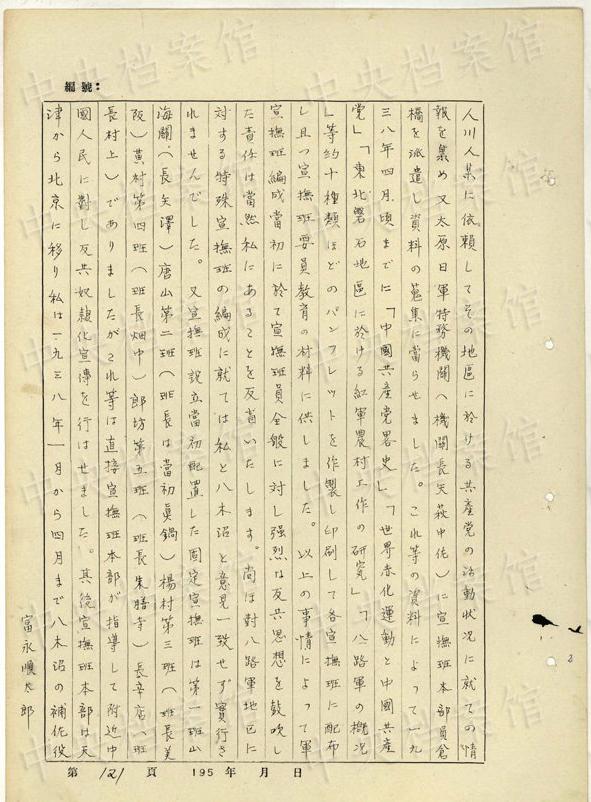 編號:
人川人某に依頼してその地區に於ける共産党の活動状況に就ての情
報を集め又太原日軍特務機關(機關長矢萩中佐)に宣撫班本部員倉
橋を派遣し資料の蒐集に當らせました。これ等の資料によって一九
三八年四月頃までに「中國共産党畧史」「世界赤化運動と中國共産
党」「東北磐石地區に於ける紅軍農村工作の研究」「八路軍の概況
」等約十種類ほどのパンフレットを作製し印刷して各宣撫班に配布
し且つ宣撫班要員教育の材料に供しました。以上の事情によって軍
宣撫班編成當初に於て宣撫班員全般に対し强烈な反共思想を鼓吹し
た責任は當然私にあることを反省いたします。尚ほ對八路軍地區に
対する特殊宣撫班の編成に就ては私と八木沼と意見一致せず實行さ
れませんでした。又宣撫班設立當初配置した固定宣撫班は第一班山
海關(長矢澤)唐山第二班(班長は當初眞鍋)楊村第三班(班長美
阪)黄村第四班(班長畑中)郎坊第五班(班長朱膳寺)長辛店(班
長村上)でありましたがこれ等は直接宣撫班本部が指導して附近中
國人民に對し反共奴隷化宣傳を行はせました。其後宣撫班本部は天
津から北京に移り私は一九三八年一月から四月まで八木沼の補佐役
富永順太郎
第 121 頁 195 年 月 日
中央档案馆